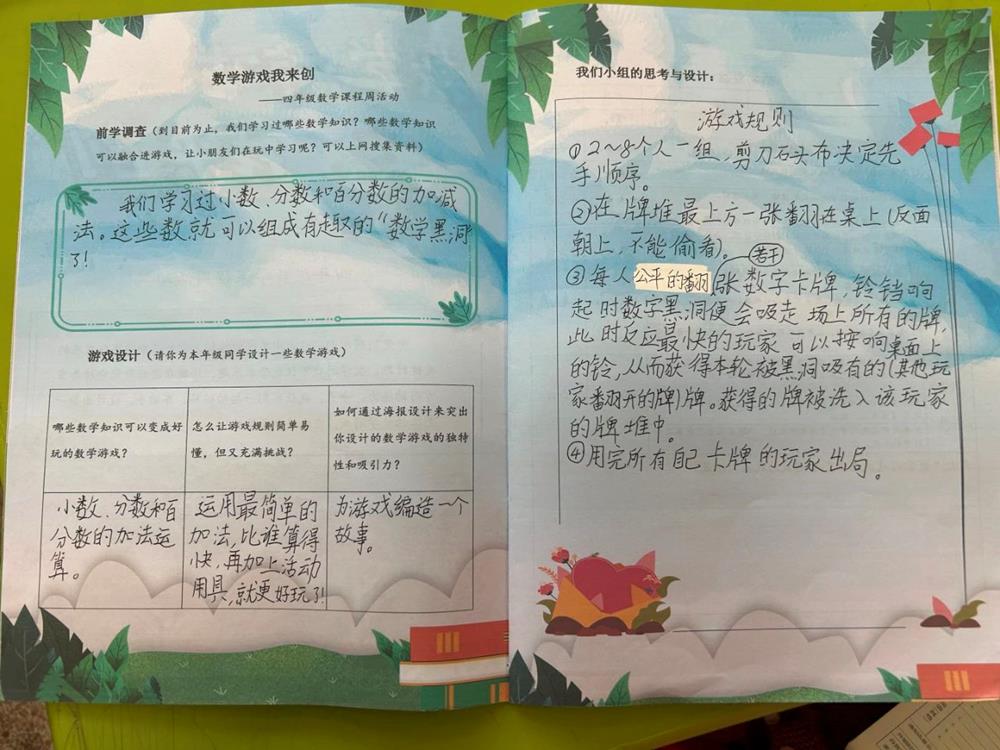 数学游戏我来创
——四年级数学课程周活动
前学调查（到目前为止，我们学习过哪些数学知识？哪些数学知识
可以融合进游戏，让小朋友们在玩中学习呢？可以上网搜集资料）
我们学习过小数、分数和百分数的加减
法。这些数就可以组成有趣的“数学黑洞
了！
游戏设计（请你为本年级同学设计一些数学游戏）
哪些数学知识可以变成好
玩的数学游戏？
怎么让游戏规则简单易
懂，但又充满挑战？
如何通过海报设计来突出
你设计的数学游戏的独特
性和吸引力？
小数、分数和百
分数的加法运
算。
运用最简单的
加法，比谁算得
快，再加上活动
用具，就更好玩了！
为游戏编造一个
故事。
我们小组的思考与设计：
游戏规则
①2～8个人一组，剪刀石头布决定先
手顺序。
②在牌堆最上方一张翻在桌上（反面
朝上，不能偷看）。
若干
③每人公平的翻张数字卡牌，铃铛响
起时数字黑洞便会吸走场上所有的牌，
此时反应最快的玩家可以按响桌面上
的铃，从而获得本轮被黑洞吸有的（其他玩
家翻开的牌）牌。获得的牌被洗入该玩家
的牌堆中。
④用完所有自己卡牌的玩家出局。